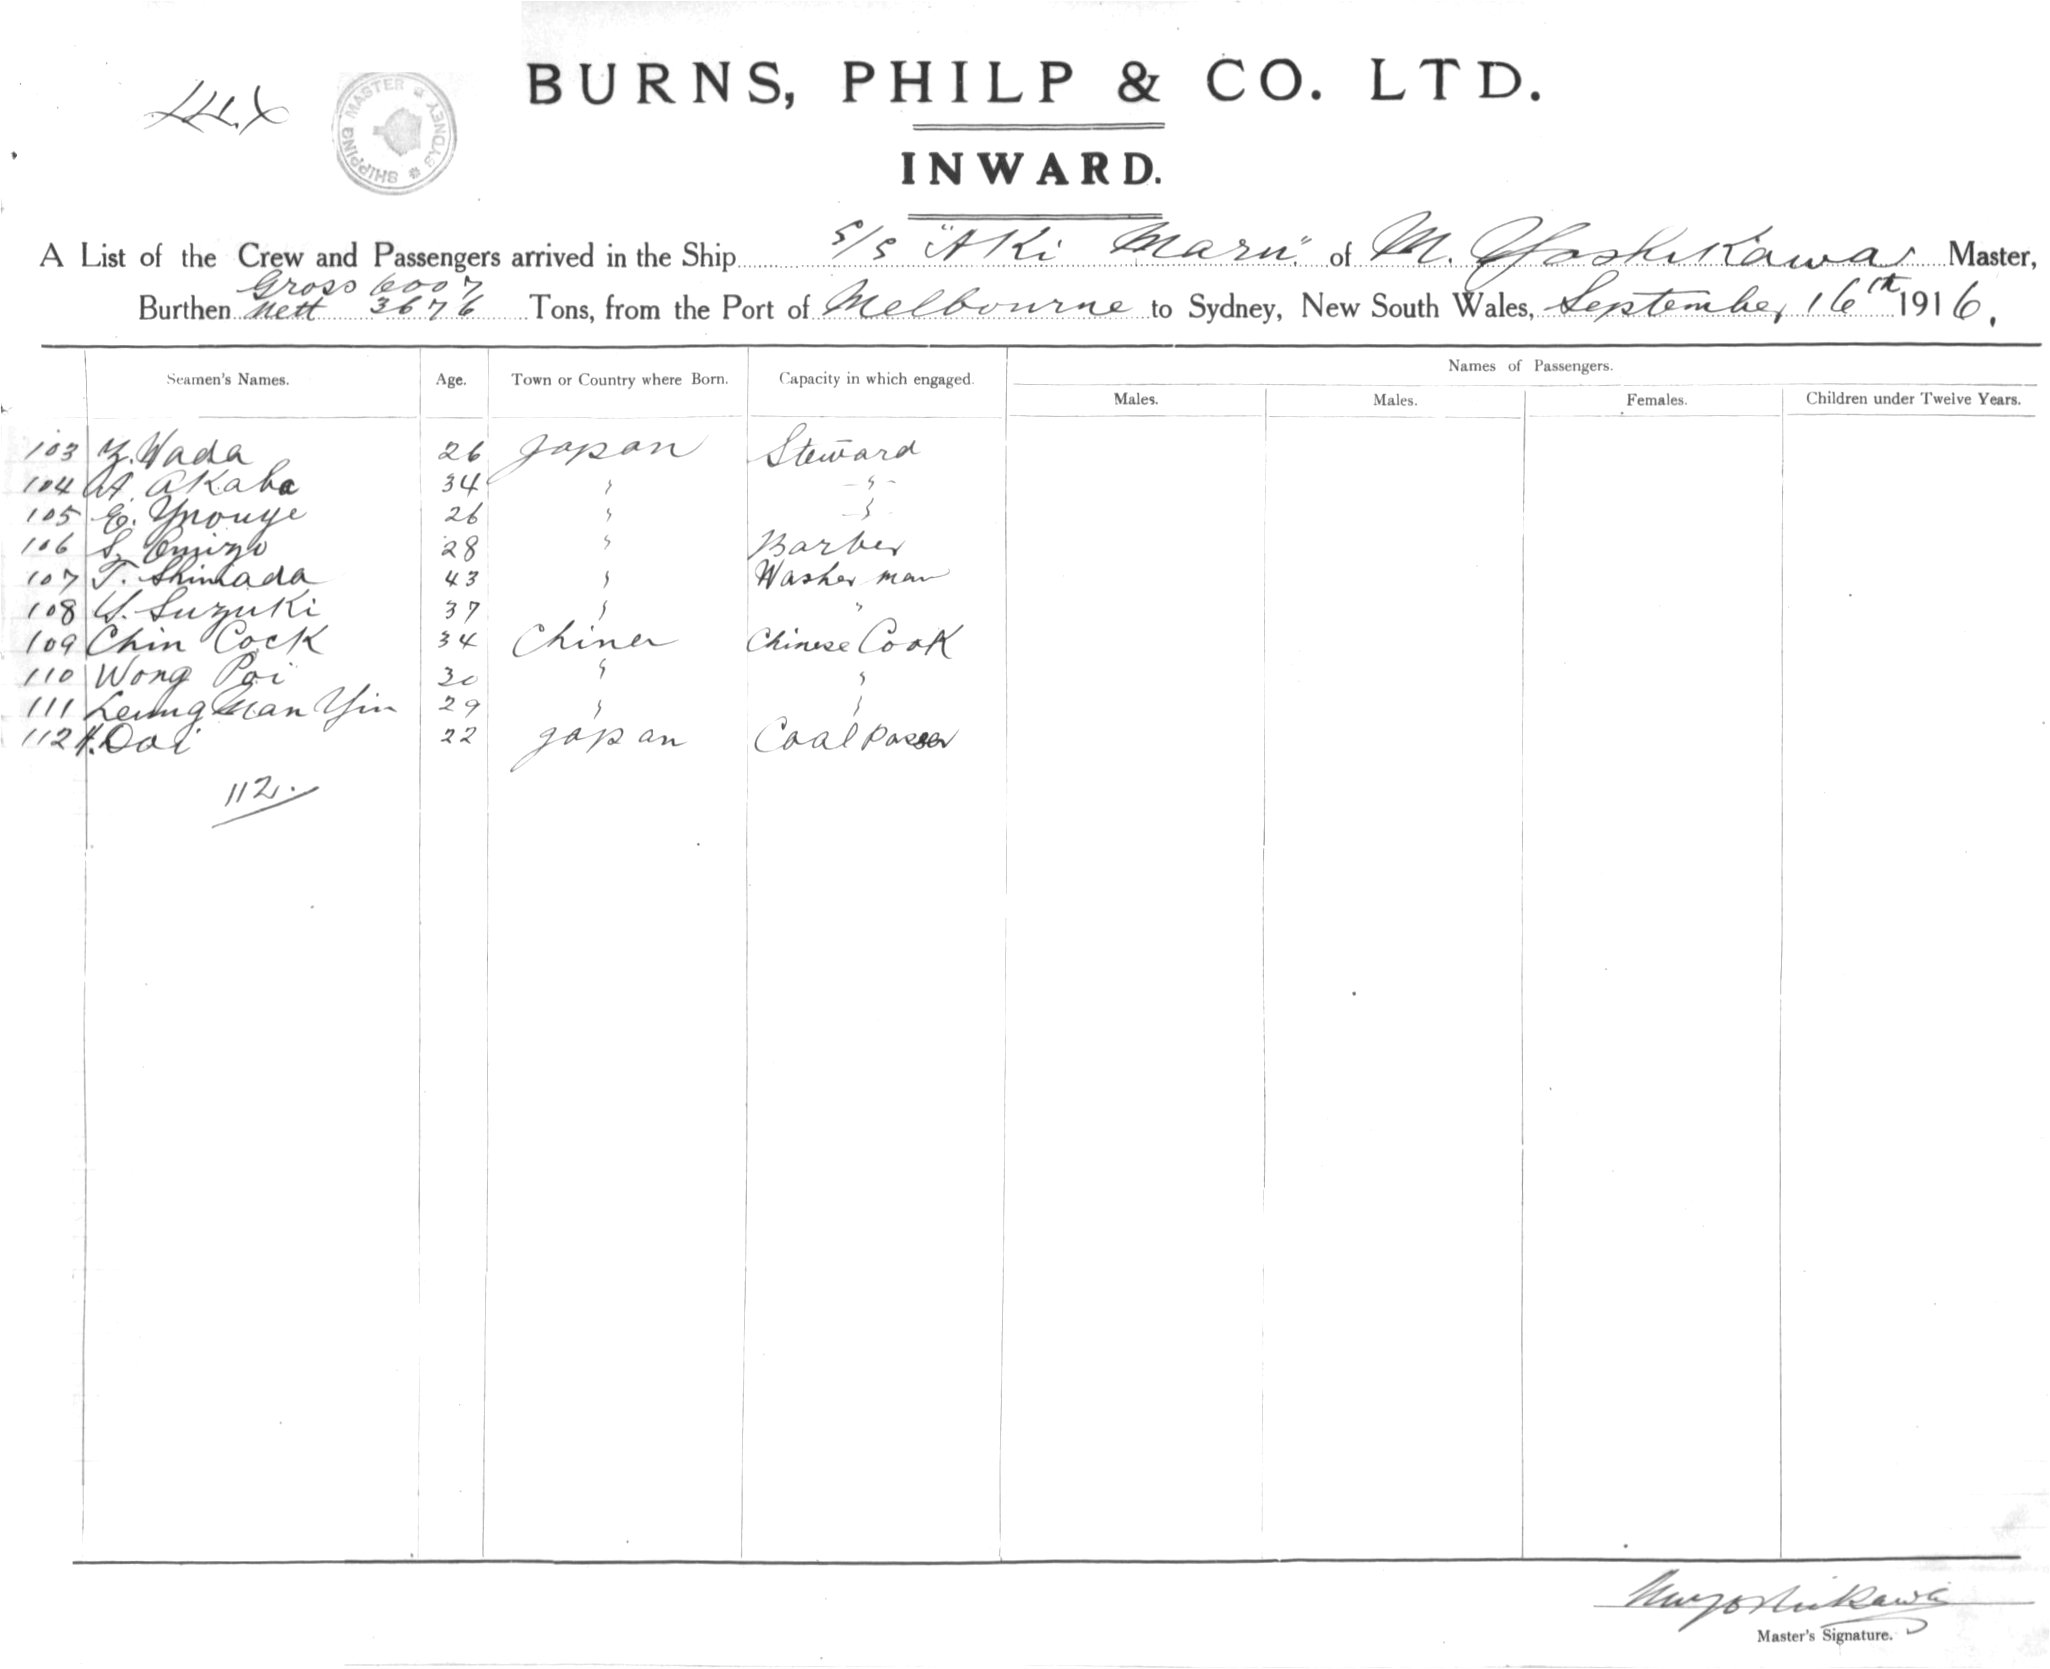 BURNS, PHILP & CO. LTD.
SHIPPING MASTER SYDNEY
INWARD.
A List of the Crew and Passengers arrived in the Ship s/s "Aki Maru" of M. Yoshikawa Master,
Gross 6007
Burthen Nett 3676 Tons, from the Port of Melbourne to Sydney, New South Wales, September 16th 1916.
Seamen's Names. Age. Town or Country where Born. Capacity in which engaged. Names of Passengers.
Males. Males. Females. Children under Twelve Years.
103 Y. Wada 26 Japan Steward
104 A. Akaba 34 " - " -
105 E. Ynouye 26 " - "
106 S. Omizo 28 " Barber
107 T. Shimada 43 " Washer man
108 Y. Suzuki 37 " "
109 Chin Cock 34 Chiner Chinese Cook
110 Wong Poi 30 " "
111 Leung Man Yin 29 " "
112 K. Doi 22 Japan Coal Passer
112.
Master's Signature.